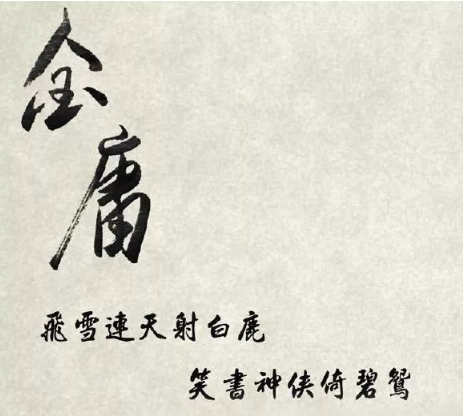 金庸
飛雪連天射白鹿
笑書神俠倚碧鴛